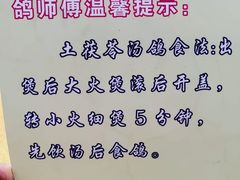 鸽师傅温馨提示：
土茯苓汤鸽食法：出
煲后大火煲滚后开盖，
转小火细煲5分钟，
先饮汤后食鸽。